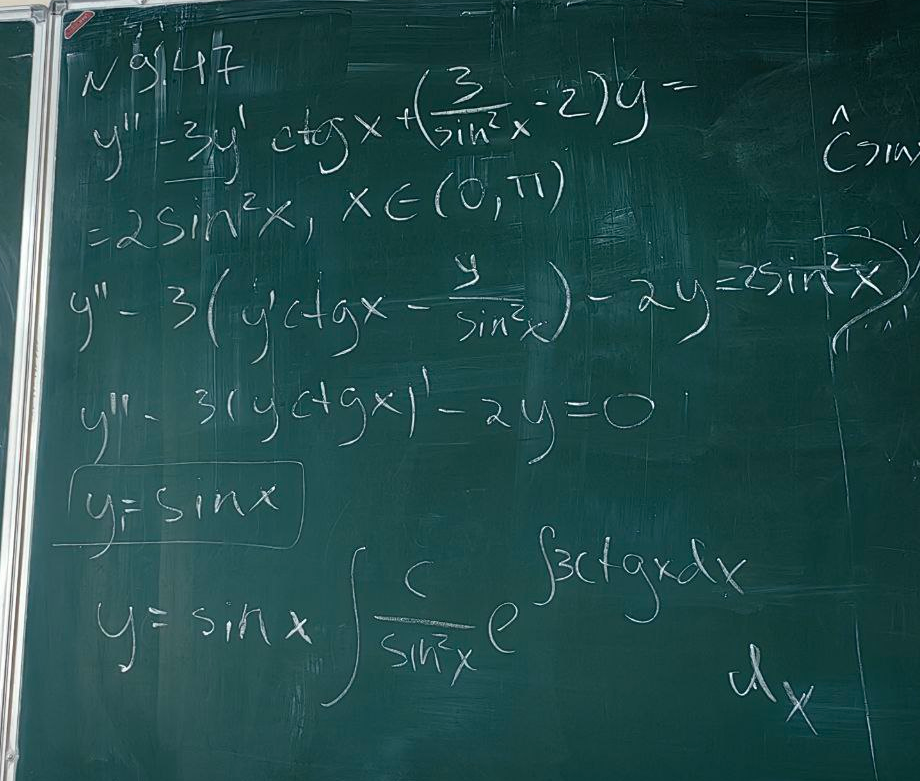 N 9.47
y'' - 3y' ctgx + (3/sin²x - 2)y =
= 2sin²x, x ∈ (0, π)
y'' - 3(y'ctgx - y/sin²x) - 2y = 2sin²x
y'' - 3(y ctgx)' - 2y = 0
y₁ = sinx
y = sinx ∫ C/sin²x e^∫3ctgxdx dx
Ĉsinx